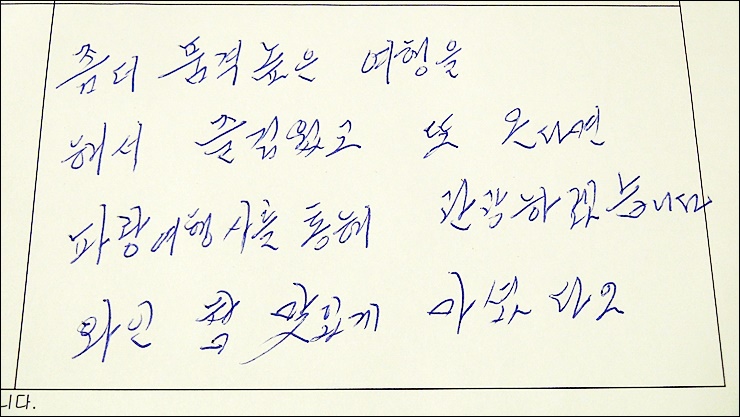 좀더 품격높은 여행을
해서 즐거웠고 또 온다면
파랑여행사를 통해 관광하겠습니다
와인 참 맛있게 마셨다오
니다.